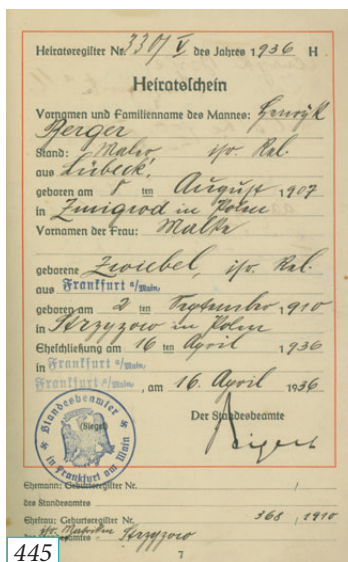 Heiratsregister Nr. 330/V des Jahres 1936 H
Heiratsschein
Vornamen und Familienname des Mannes: Henryk
Berger
Stand: Maler isr. Rel.
aus Lübeck
geboren am 8 ten August 1907
in Zmigrod in Polen
Vornamen der Frau: Malka
geborene Zwiebel, isr. Rel.
aus Frankfurt a/Main,
geboren am 2 ten September 1910
in Strzyzow in Polen
Eheschließung am 16 ten April 1936
in Frankfurt a/Main,
Frankfurt a/Main, am 16. April 1936
Der Standesbeamte
Standesbeamter
(Siegel)
in Frankfurt am Main
Ehemann: Geburtsregister Nr.
des Standesamtes
Ehefrau: Geburtsregister Nr. 368, 1910
isr. Matriken Strzyzow
des Standesamtes
445
7